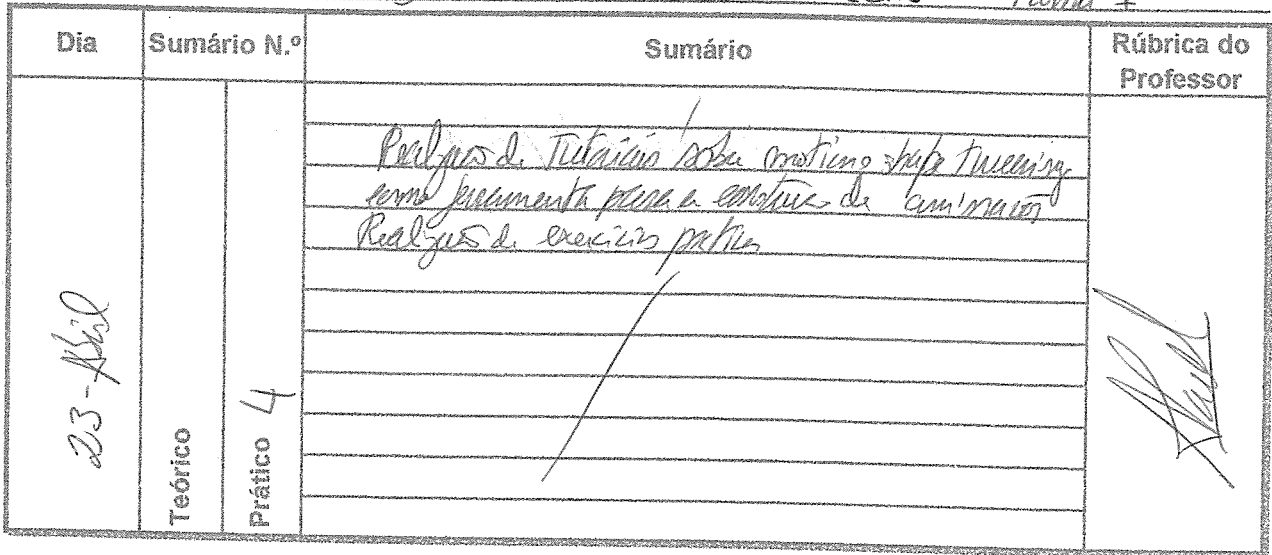 Turma I
Dia
Sumário N.º
Sumário
Rúbrica do
Professor
23-Abril
Teórico
Prático 4
Realização de Tutoriais sobre motion e shape tweening
como ferramenta para a construção de animações
Realização de exercícios práticos